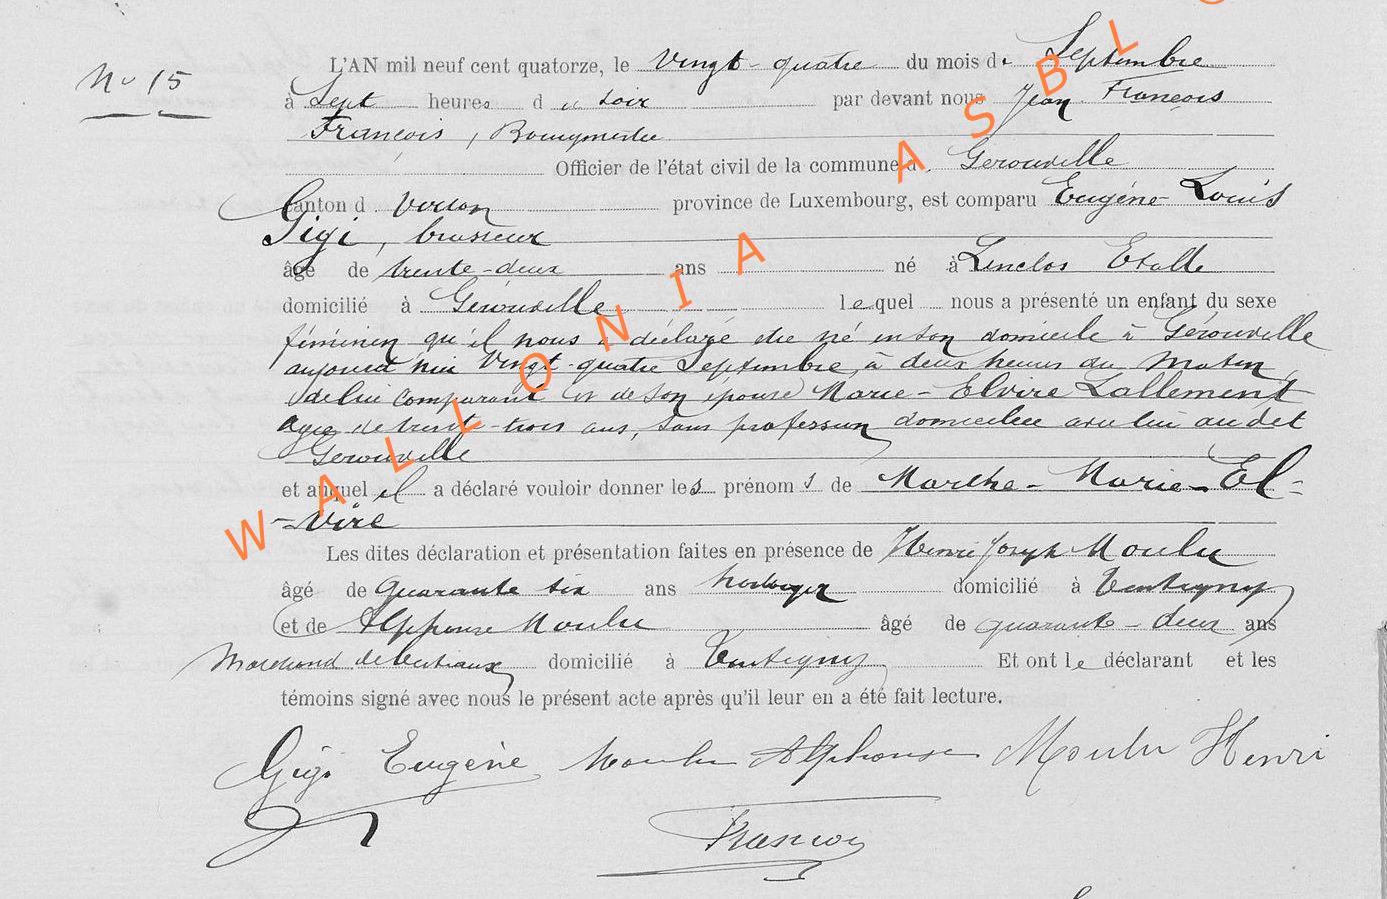 No 15
L'AN mil neuf cent quatorze, le vingt-quatre du mois de Septembre
à Sept heures du soir par devant nous Jean François
François, Bourgmestre
Officier de l'état civil de la commune de Gérouville
Canton de Virton province de Luxembourg, est comparu Eugène Louis
Gigi, brasseur
âgé de trente-deux ans né à Lenclos Etalle
domicilié à Gérouville lequel nous a présenté un enfant du sexe
féminin qu'il nous a déclaré être né en son domicile à Gérouville
aujourd'hui Vingt-quatre Septembre, à deux heures du matin,
de lui comparant et de son épouse Marie-Elvire Lallement
âgée de trente-trois ans, sans profession, domiciliée avec lui au dit
Gérouville
et auquel il a déclaré vouloir donner les prénoms de Marthe-Marie-El-
-vire
Les dites déclaration et présentation faites en présence de Henri Joseph Moulu
âgé de quarante six ans horloger domicilié à Tintigny
et de Alphonse Moulu âgé de quarante-deux ans
marchand de bestiaux domicilié à Tintigny Et ont le déclarant et les
témoins signé avec nous le présent acte après qu'il leur en a été fait lecture.
Gigi Eugène Moulu Alphonse Moulu Henri
François
WALLONIA ASBL